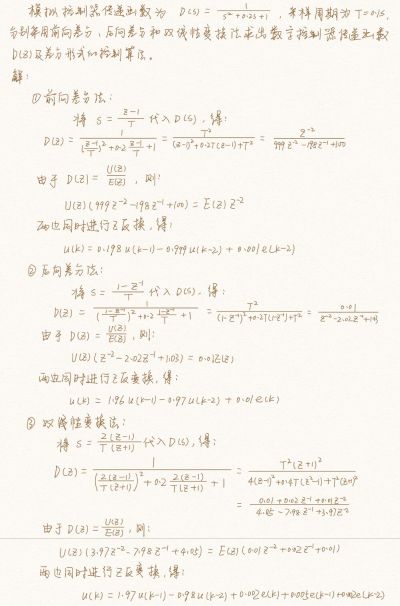 模拟控制器传递函数为 D(s) = 1/(s²+0.2s+1), 采样周期为T=0.1s,
分别采用前向差分、后向差分和双线性变换法求出数字控制器传递函数
D(z)及差分形式的控制算法。
解:
① 前向差分法:
将 s = (z-1)/T 代入D(s), 得:
D(z) = 1/(((z-1)/T)²+0.2 (z-1)/T+1) = T²/((z-1)²+0.2T(z-1)+T²) = z⁻²/(999z⁻²-198z⁻¹+100)
由于 D(z) = U(z)/E(z), 则:
U(z)(999z⁻²-198z⁻¹+100) = E(z)z⁻²
两边同时进行Z反换, 得:
u(k) = 0.198u(k-1)-0.999u(k-2)+0.001e(k-2)
② 后向差分法:
将 s = (1-z⁻¹)/T 代入D(s), 得:
D(z) = 1/(((1-z⁻¹)/T)²+0.2 (1-z⁻¹)/T+1) = T²/((1-z⁻¹)²+0.2T(1-z⁻¹)+T²) = 0.01/(z⁻²-2.02z⁻¹+1.03)
由于 D(z) = U(z)/E(z), 则:
U(z)(z⁻²-2.02z⁻¹+1.03) = 0.01E(z)
两边同时进行Z反变换, 得:
u(k) = 1.96u(k-1)-0.97u(k-2)+0.01e(k)
③ 双线性变换法:
将 s = 2(z-1)/T(z+1) 代入D(s), 得:
D(z) = 1/((2(z-1)/T(z+1))²+0.2 2(z-1)/T(z+1)+1) = T²(z+1)²/(4(z-1)²+0.4T(z²-1)+T²(z+1)²)
= (0.01+0.02z⁻¹+0.01z⁻²)/(4.05-7.98z⁻¹+3.97z⁻²)
由于 D(z) = U(z)/E(z), 则:
U(z)(3.97z⁻²-7.98z⁻¹+4.05) = E(z)(0.01z⁻²+0.02z⁻¹+0.01)
两边同时进行Z反变换, 得:
u(k) = 1.97u(k-1)-0.98u(k-2)+0.002e(k)+0.005e(k-1)+0.002e(k-2)